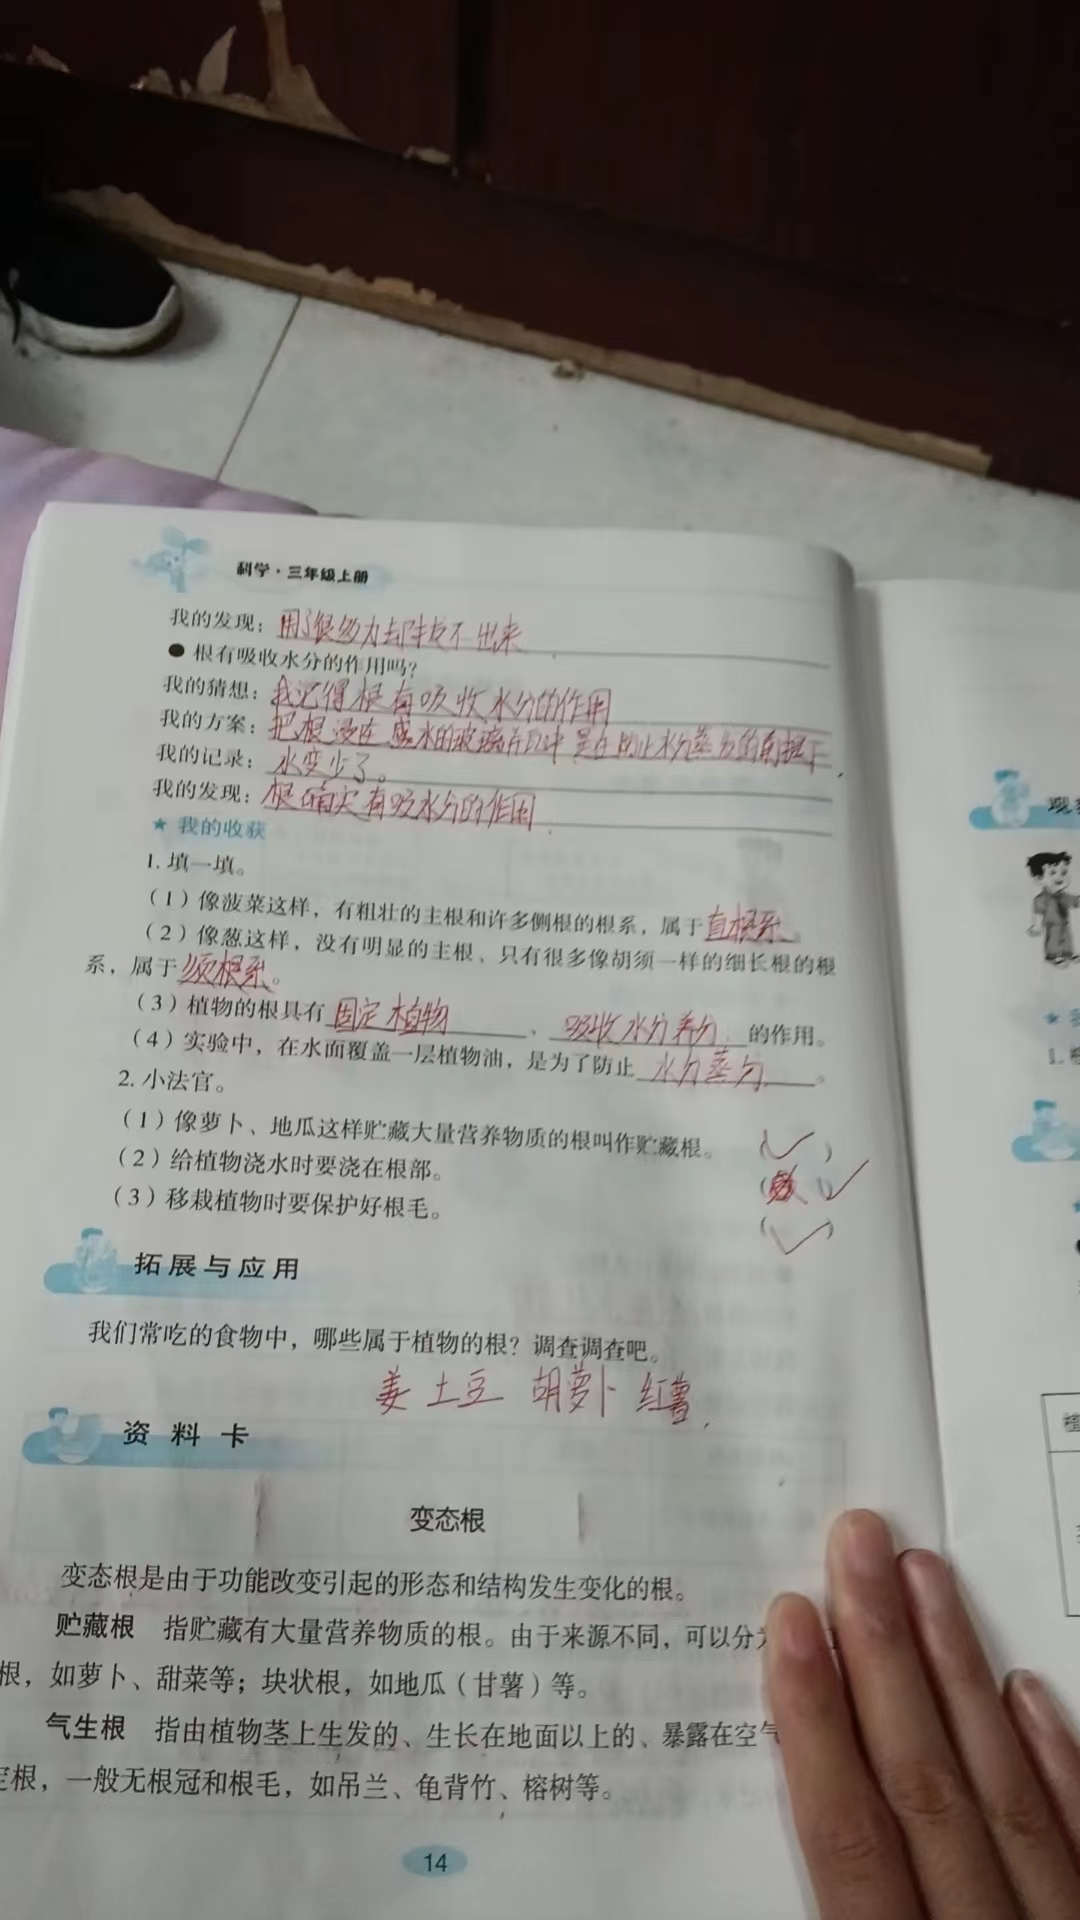 科学·三年级上册
我的发现：用了很多力却拔不出来
● 根有吸收水分的作用吗？
我的猜想：我记得根有吸收水分的作用
我的方案：把根浸在盛水的玻璃 中 是在防止水分蒸分的前提下
我的记录：水变少了。
我的发现：根确实有吸水分的作用
★ 我的收获
1. 填一填。
（1）像菠菜这样，有粗壮的主根和许多侧根的根系，属于直根系。
（2）像葱这样，没有明显的主根、只有很多像胡须一样的细长根的根
系，属于须根系。
（3）植物的根具有固定植物、吸收水分养分的作用。
（4）实验中，在水面覆盖一层植物油，是为了防止水分蒸分。
2. 小法官。
（1）像萝卜、地瓜这样贮藏大量营养物质的根叫作贮藏根。（✓）
（2）给植物浇水时要浇在根部。（ ）✓
（3）移栽植物时要保护好根毛。（✓）
拓展与应用
我们常吃的食物中，哪些属于植物的根？调查调查吧。
姜 土豆 胡萝卜 红薯
资料卡
变态根
变态根是由于功能改变引起的形态和结构发生变化的根。
贮藏根 指贮藏有大量营养物质的根。由于来源不同，可以分为
根，如萝卜、甜菜等；块状根，如地瓜（甘薯）等。
气生根 指由植物茎上生发的、生长在地面以上的、暴露在空气
根，一般无根冠和根毛，如吊兰、龟背竹、榕树等。
14
观
★
1.
植